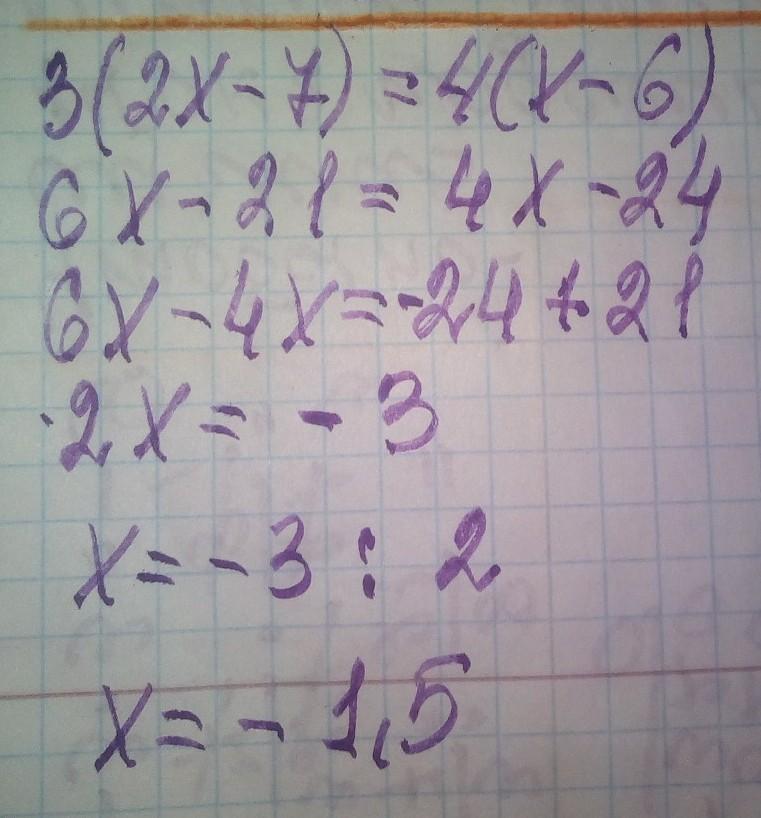 3(2x-7)=4(x-6)
6x-21=4x-24
6x-4x=-24+21
2x=-3
x=-3:2
x=-1,5